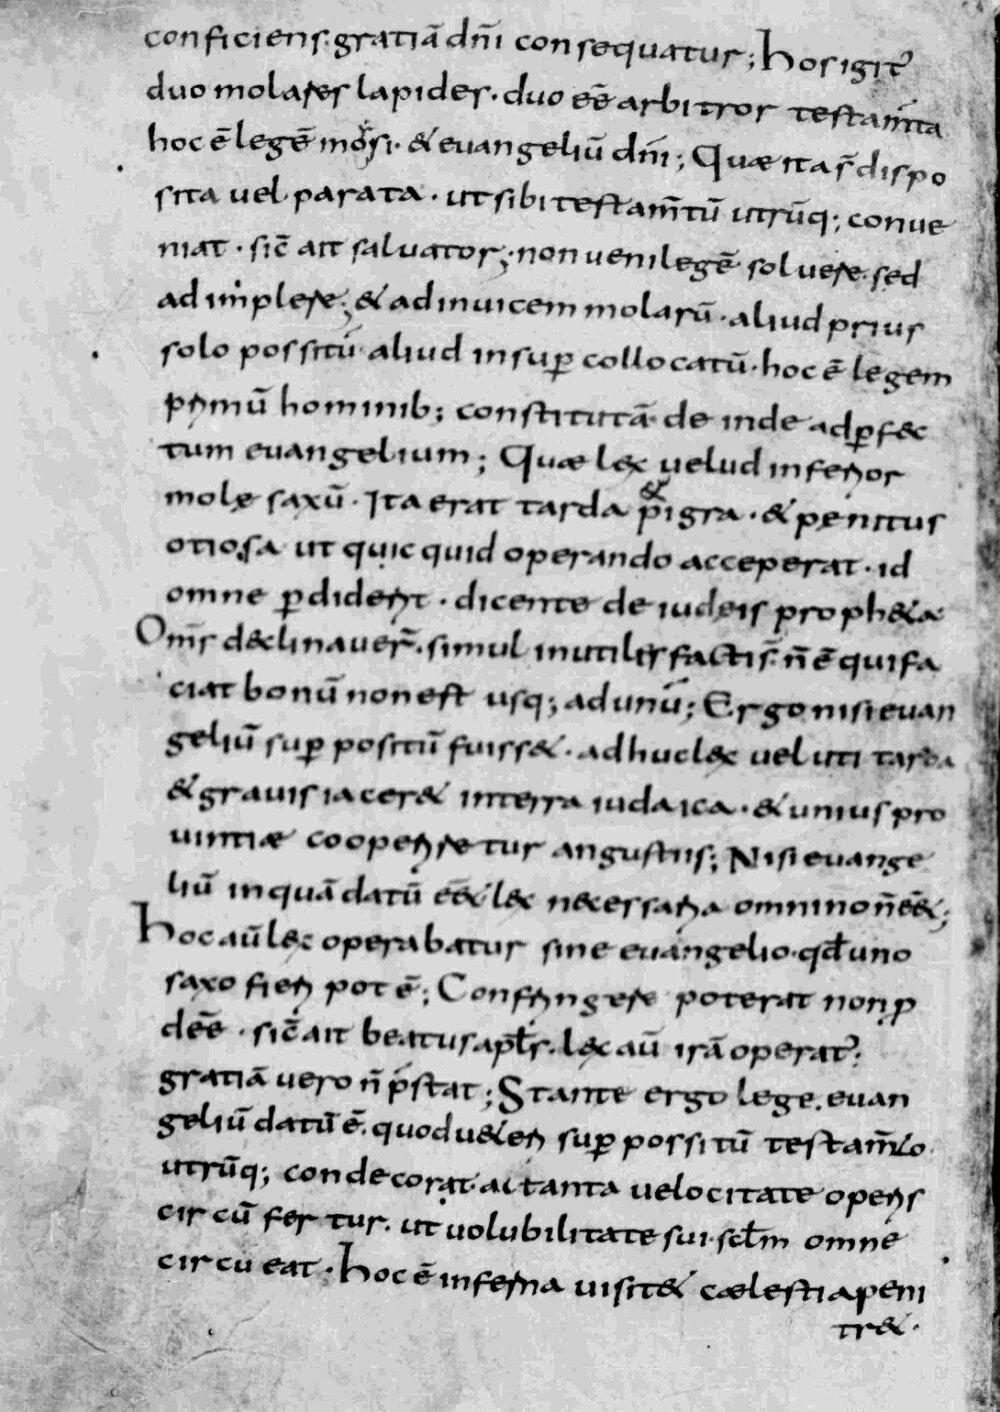 conficiens. gratiā dn̄i consequatur; Hos igit᷑
duo molares lapides. duo eē̄ arbitror testam̄ta
hoc ē legē moysi. & evangeliū dn̄i; Quae ita s̄ dispo
sita vel parata. ut sibi testam̄tū utrūq; conue
niat. sic̄ ait saluator; non ueni legē soluere. sed
adimplere; & ad inuicem molarū. aliud prius
solo possitū aliud insuꝑ collocatū. hoc ē legem
primū hominib; constitutā. de inde adꝑfec
tum evangelium; Quae lex velud inferior
molę saxū. Ita erat tarda & pigra. & pęnitus
otiosa ut quicquid operando acceperat. id
omne ꝑdiderit. dicente de iudeis propheta
Om̄s declinauer̄. simul inutiles facti s̄. n̄ ē qui fa
ciat bonū non est usq; ad unū; Ergo nisi evan
geliū suꝑ positū fuiss&. adhuc lex veluti tarda
& gravis iacer& in terra iudaica. & unius pro
uintiae cooperiretur angustiis; Nisi evange
liū inquā datū eēt lex necessaria omnino n̄ eēt;
Hoc aū lex operabatur sine evangelio. qd̄ uno
saxo fieri pot ē; Confringere poterat non ꝓ
deēe. sic̄ ait beatus aptl̄s. lex aū irā operat᷑;
gratiā vero n̄ p̄stat; Stante ergo lege. evan
geliū datū ē. quod ueteri suꝑ possitū testam̄to
utrūq; condecorat. ac tanta velocitate operis
circū fertur. ut volubilitate sui. scl̄m omne
circueat. Hoc ē inferna uisit& caelestia peni
tr&.